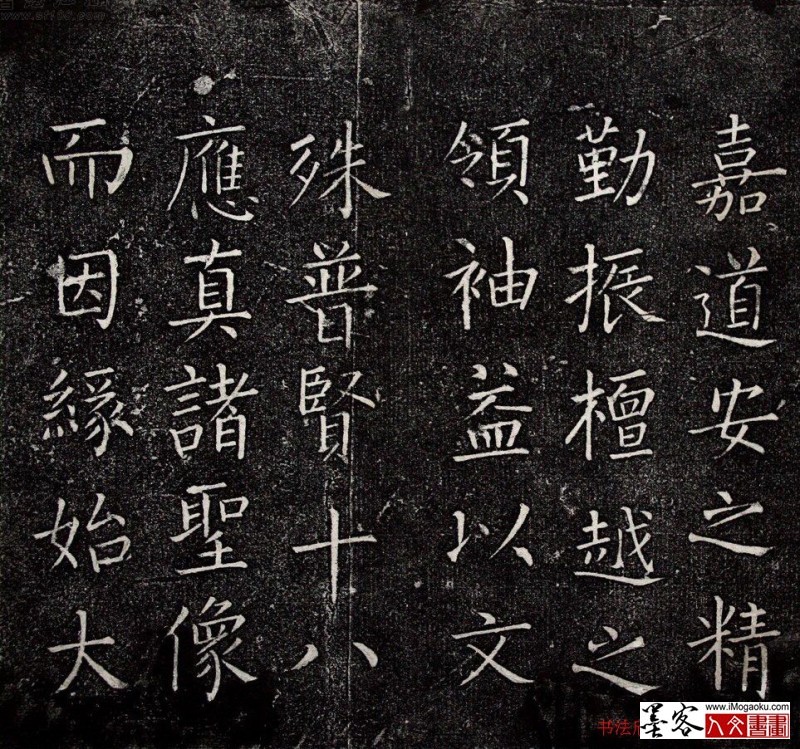 嘉道安之精
勤振檀越之
領袖益以文
殊普賢十八
應真諸聖像
而因緣始大
www.iMogaoku.com
墨客人文書畫